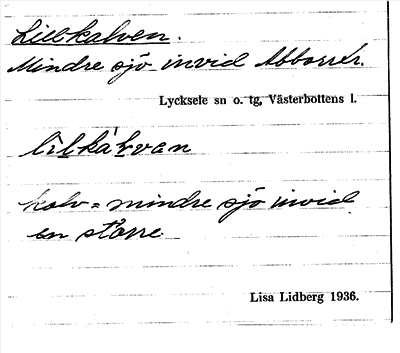 Lillkalven.
Mindre sjö invid Abborrtr.
Lycksele sn o. tg, Västerbottens l.
kalv = mindre sjö invid
en större
Lisa Lidberg 1936.